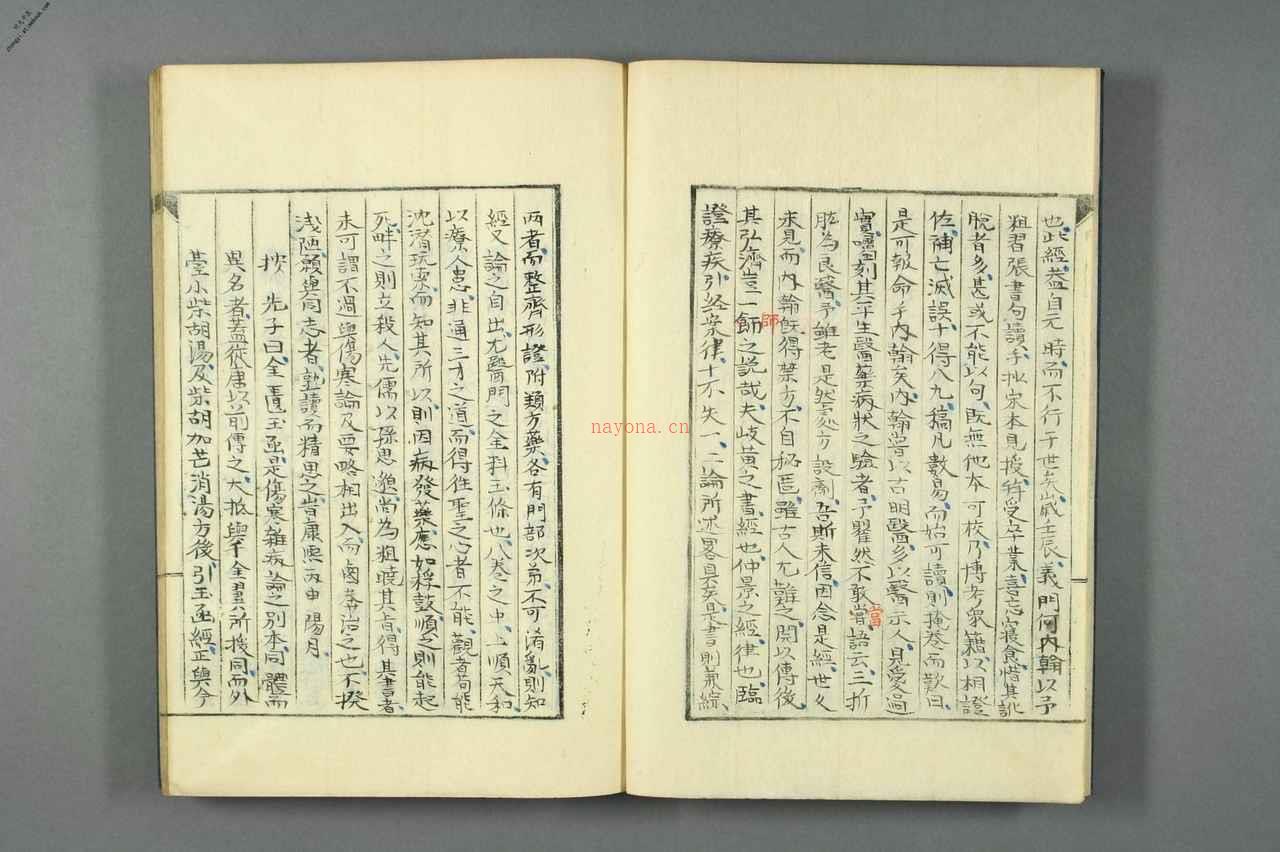 也此經蓋自元時而不行于世矣歲壬辰義門何內翰以予
粗習張書句讀手抄宋本見授拜受卒業喜忘寢食惜其訛
脫者多甚或不能以句既無他本可校乃博考衆籍以相證
佐補亡滅誤十得八九稿凡數易而始可讀則掩卷而歎曰
是可報命乎內翰矣內翰嘗以古明醫多以醫示人見愛過
實囑刻其平生醫藥病狀之驗者予瞿然不敢當語云三折
肱為良醫予雖老是然處方設劑吾斯未信因念是經世久
未見而內翰既得禁方不自秘匿雖古人尤難之開以傳後
其弘濟豈一師之說哉夫岐黃之書經也仲景之經律也臨
證療疾引経案律十不失一二論所述畧具矣是書則兼綜
两者而整齊形證附類方藥各有門部次第不可淆亂則知
經又論之自出尤醫門之全科玉條也八卷之中上順天和
以療人患非通三才之道而得往聖之心者不能觀者苟能
沈潛玩索而知其所以則因病發藥應如桴鼓順之則能起
死畔之則立殺人先儒以孫思邈尚為粗曉其旨得其書者
未可謂不過與傷寒論及要略相出入而鹵莽治之也不揆
浅陋願與同志者熟讀而精思之旹康熙丙申陽月
按先子曰金匱玉函是傷寒雜病論之別本同體而
異名者蓋從唐以前傳之大抵與千金翼所援同而外
臺小柴胡湯及柴胡加芒消湯方後引玉函經正與今
師
當
nayona.cn